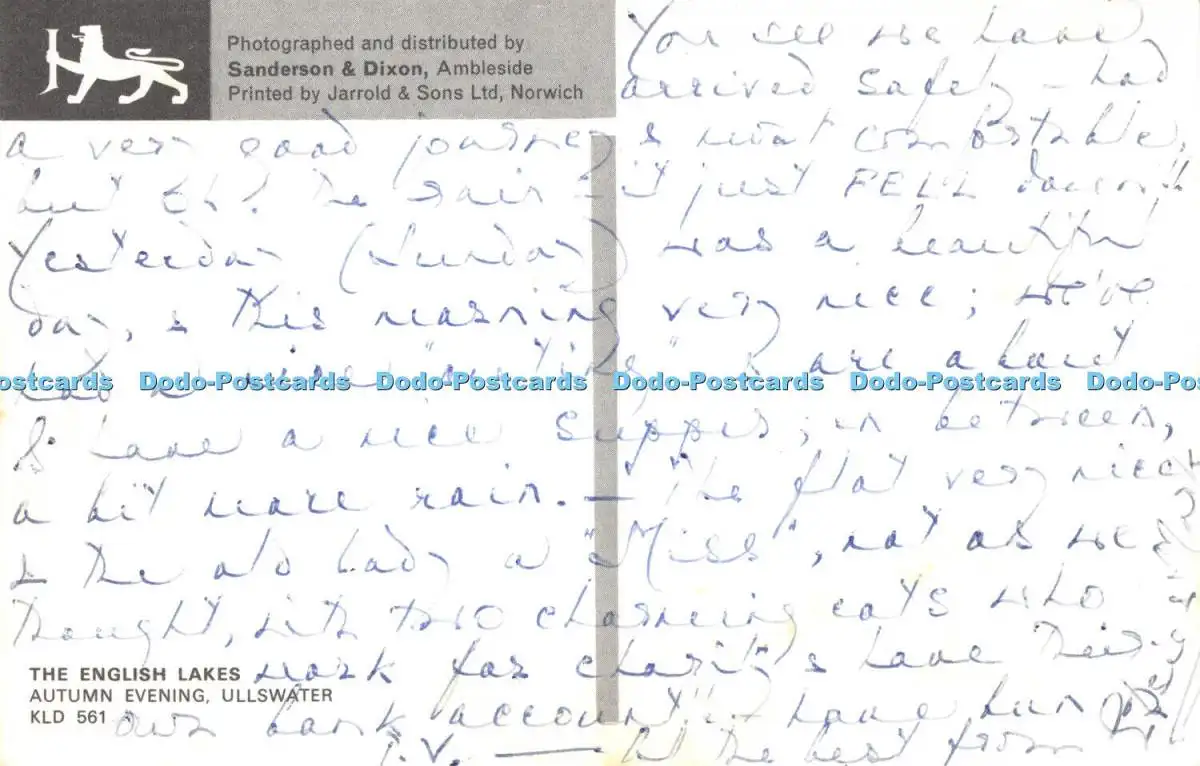 Photographed and distributed by
Sanderson & Dixon, Ambleside
Printed by Jarrold & Sons Ltd, Norwich
You see we have
arrived safely – had
a very good journey & most comfortable,
but Eh! The rain – it just FELL down!!
Yesterday (Sunday) was a beautiful
day, & this morning very nice; we've
had a nice & are about
Dodo-Postcards Dodo-Postcards Dodo-Postcards Dodo-Postcards Dodo-Postcards
to have a nice supper; in between,
a bit more rain. – The flat very nice
& the old lady a "Miss", not as we
thought, with two charming cats who
work for charity & have their
own bank account!! – have
T.V. — All the best from
THE ENGLISH LAKES
AUTUMN EVENING, ULLSWATER
KLD 561